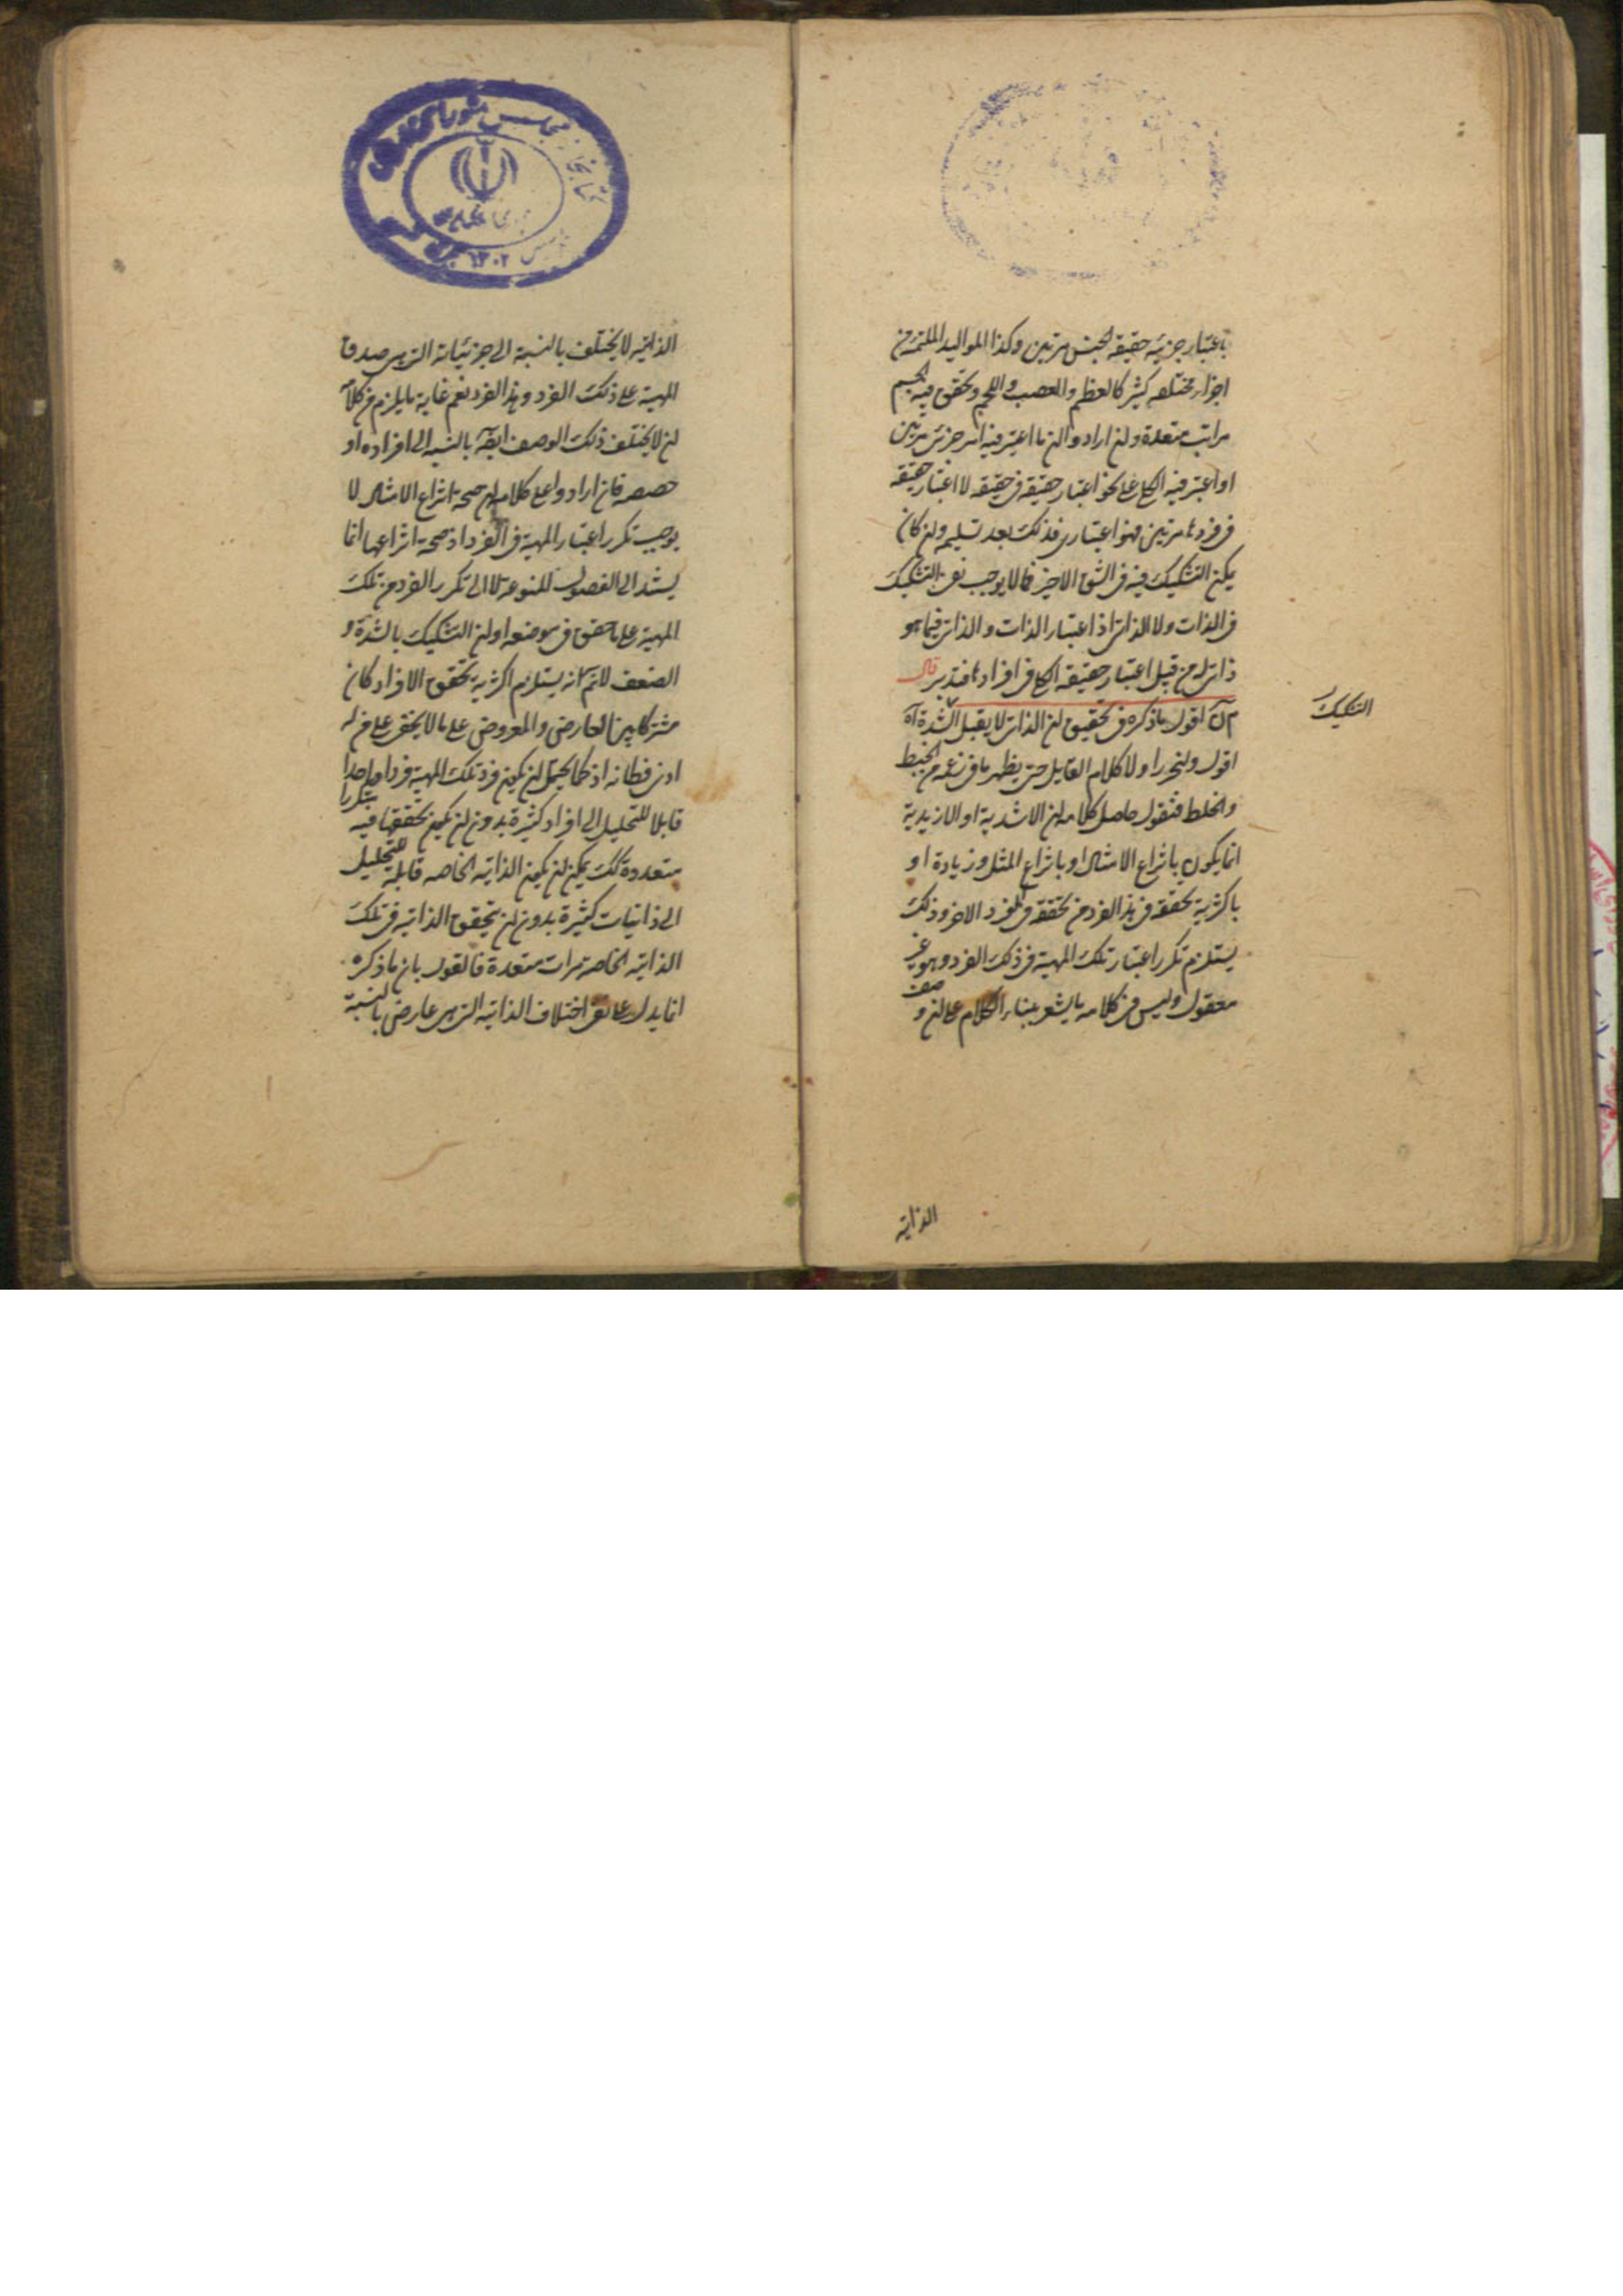 باعتبار جزئية حقيقة الجنس مرتين وكذا المواليد الملتئمة من
اجزاء مختلفة كثيرة كالعظم والعصب واللحم وتحقق فيه الجسم
مراتب متعددة ولن ارادوا لن ما اعتبر فيه انه جزئى مرتين
او اعتبر فيه الكلى على نحو اعتبار حقيقة فى حقيقة لا اعتبار حقيقة
فى فردها مرتين فهو اعتبارى فذلك بعد تسليمه ولن كان
يمكن التشكيك فيه فى الشق الاخير فمما لا يوجب نفى التشكيك
فى الذات ولا الذاتى اذ اعتبار الذات والذاتى فيما هو
ذاتى له من قبل اعتبار حقيقة الكلى فى افرادها فتدبر قال
اقول ما ذكره فى تحقيق لن الذاتى لا يقبل الشدة آه
التشكيك
اقول ولنحرر اولا كلام القايل حتى يظهر ما فى زعمه من الخبط
والخلط فنقول حاصل كلامه لن الاشدية او الازيدية
انما يكون بانتزاع الامثال او بانتزاع المثل وزيادة او
باكثرية تحققه فى هذا الفرد من تحققه فى الفرد الاخر وذلك
يستلزم تكرر اعتبار تلك المهية فى ذلك الفرد وهو غير
معقول وليس فى كلامه ما يشعر ببناء الكلام على لن وصف
الذاتية
الذاتية لا يختلف بالنسبة الى جزئياته التى هى صدق
المهية على ذلك الفرد وهذا الفرد نعم غاية ما يلزم من كلامه
لن لا يختلف ذلك الوصف ايضا بالنسبة الى افراده او
حصصه فان ارادوا على كلامه لن صحة انتزاع الامثال لا
يوجب تكرر اعتبار المهية فى الفرد اذ صحة انتزاعها انما
يستند الى الفصول المنوعة لا الى تكرر الفرد من تلك
المهية على ما حقق فى موضعه او لن التشكيك بالشدة و
الضعف لا نم انه يستلزم اكثرية تحقق الافراد كان
مشتركا بين العارضى والمعروضى على ما لا يخفى على من له
ادنى فطانة اذ كما يحتمل لن يكون فرد تلك المهية فردا واحدا
قابلا للتحليل الى افراد كثيرة بدون لن يكون تحققها فيه متكررا
متعددة كك يمكن لن يكون الذاتية الخاصة قابلة للتحليل
الى ذاتيات كثيرة بدون لن يتحقق الذاتية فى تلك
الذاتية الخاصة مرات متعددة فالقول بان ما ذكره
انما يدل على نفى اختلاف الذاتية التى هى عارض بالنسبة